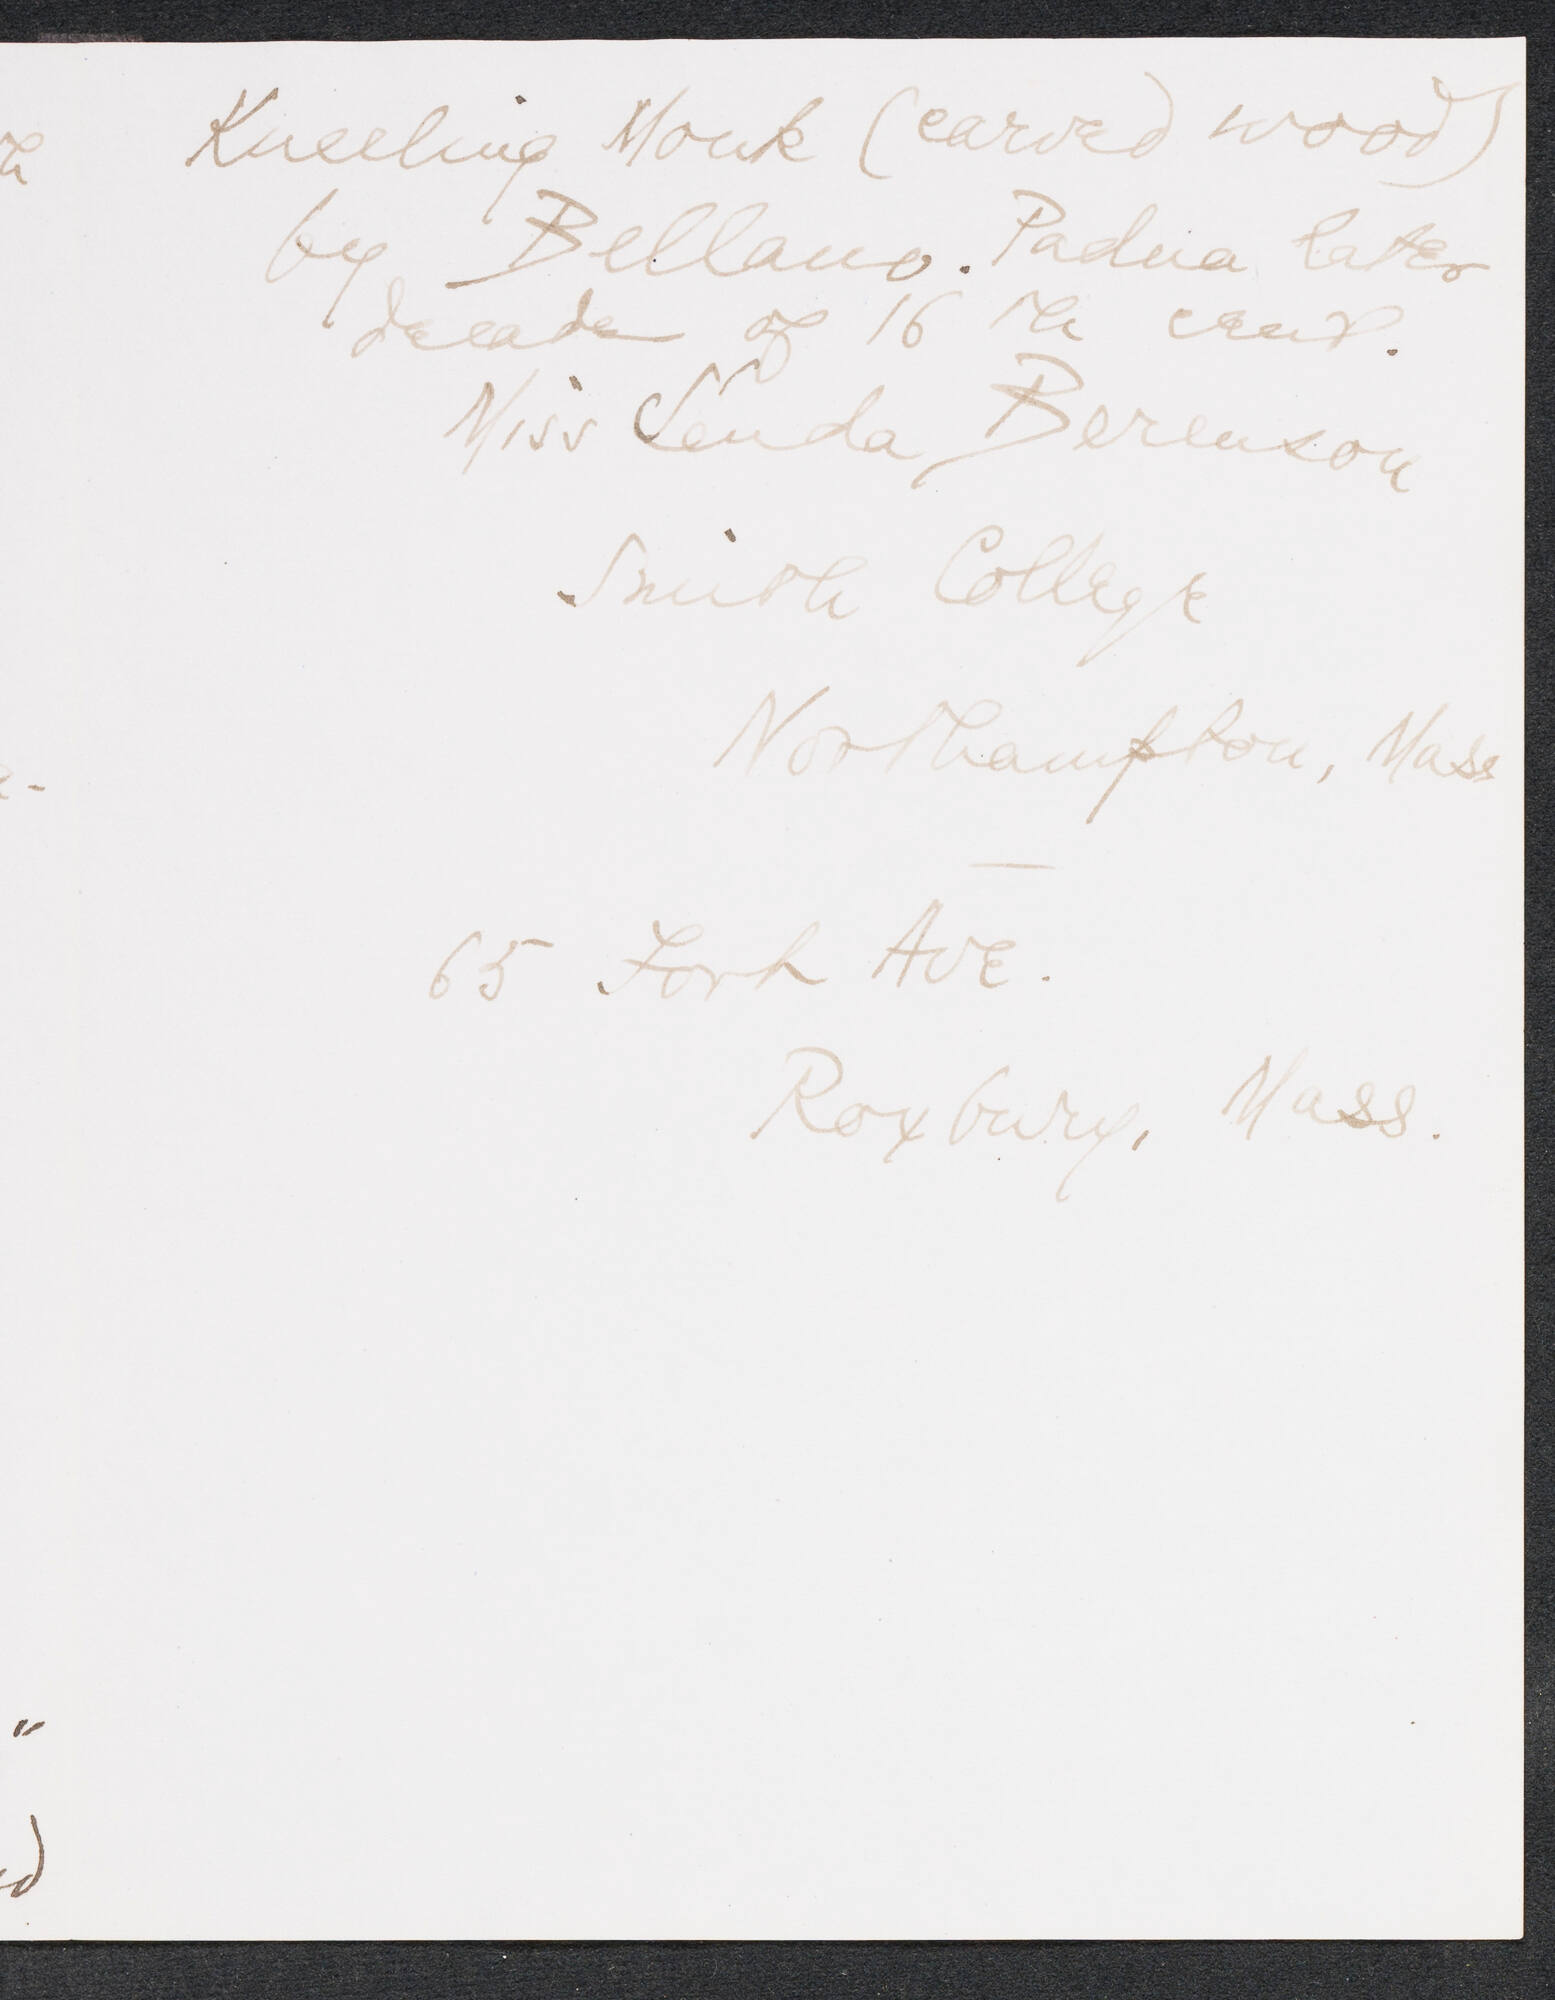 Kneeling Monk (carved wood)
by Bellano. Padua later
decade of 16 th cent.
Miss Senda Berenson
Smith College
Northampton, Mass
—
65 Fort Ave.
Roxbury, Mass.